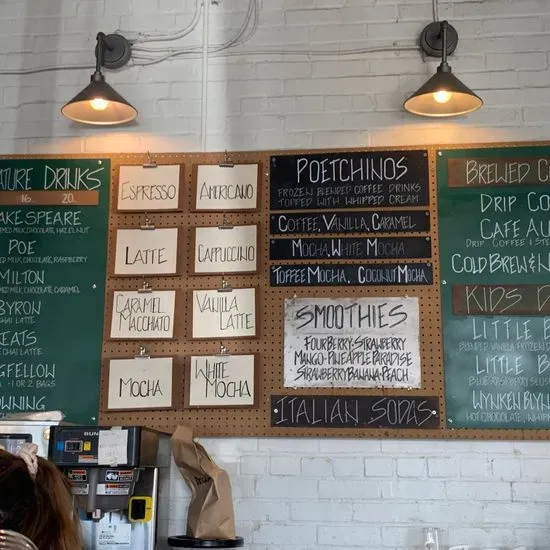 ATURE DRINKS
16. 20.
AKE SPEARE
MED MILK, CHOCOLATE, HAZELNUT
POE
MILK, CHOCOLATE, RASPBERRY
MILTON
MED MILK, CHOCOLATE, CARAMEL
BYRON
CHAI LATTE
EATS
CHAI LATTE
GFELLOW
- 1 OR 2 BAGS
WNING
ESPRESSO
AMERICANO
LATTE
CAPPUCCINO
CARAMEL
MACCHIATO
VANILLA
LATTE
MOCHA
WHITE
MOCHA
POETCHINOS
FROZEN BLENDED COFFEE DRINKS
TOPPED WITH WHIPPED CREAM
COFFEE, VANILLA, CARAMEL
MOCHA, WHITE MOCHA
TOFFEE MOCHA, COCONUT MOCHA
SMOOTHIES
FOUR BERRY-STRAWBERRY
MANGO-PINEAPPLE PARADISE
STRAWBERRY BANANA-PEACH
ITALIAN SODAS
BREWED C
DRIP CO
CAFE AU
DRIP COFFEE & STE
COLD BREW & N
KIDS D
LITTLE B
BLENDED VANILLA FROZEN D
LITTLE B
BLUE RASPBERRY SLUS
WYNKEN BLYN
HOT CHOCOLATE, WHIP
BUNN